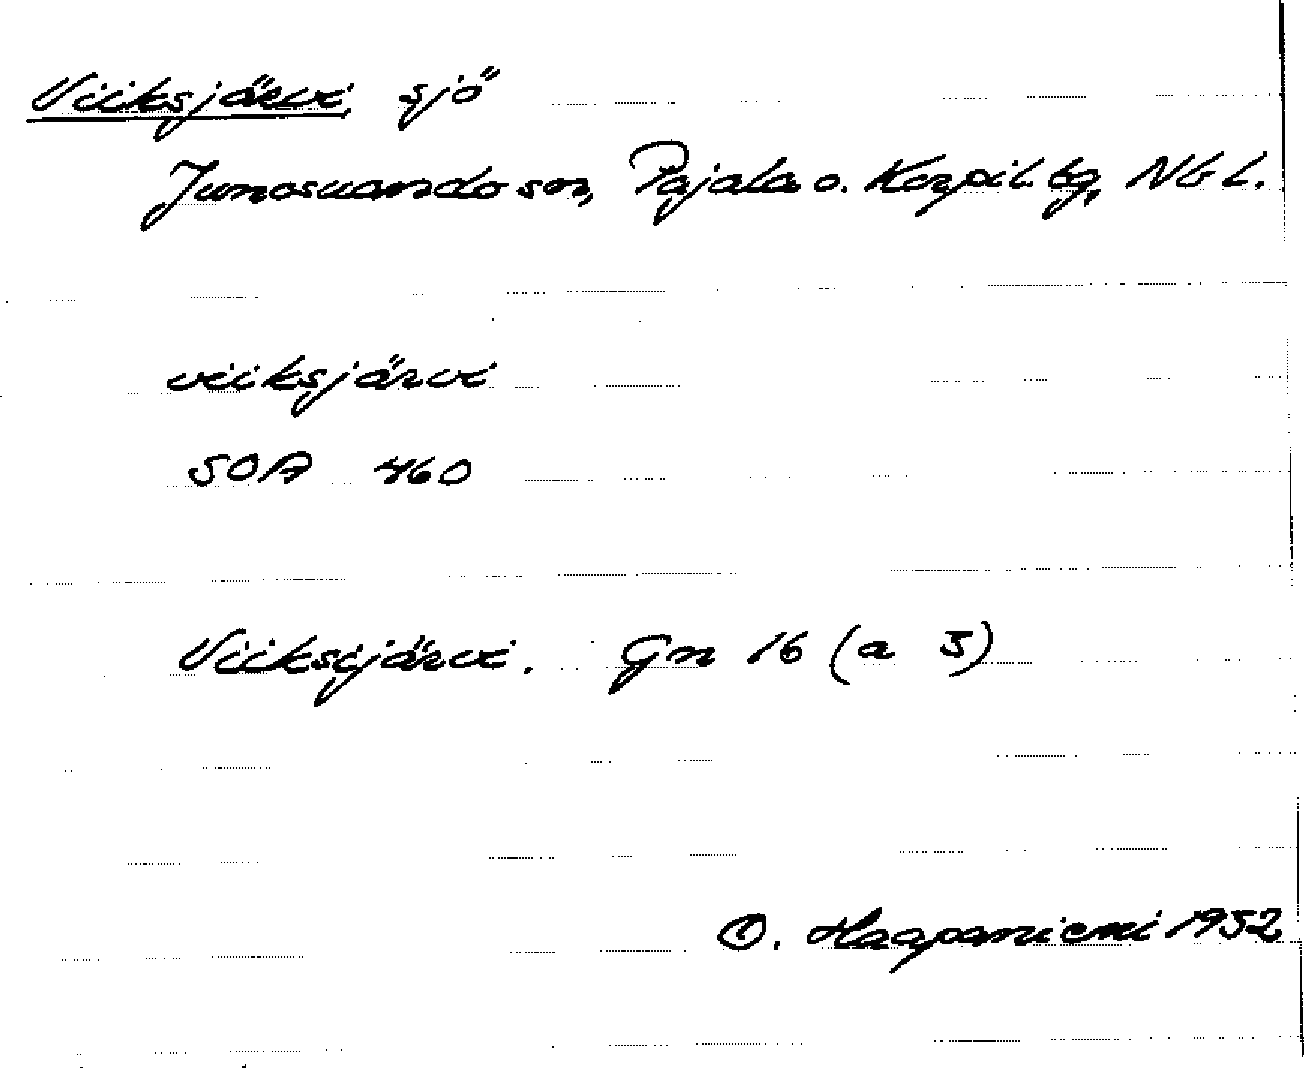 Viiksjärvi, sjö
Junosuando sn, Pajala o. Korpil. tg, Nb L.
viiksjärvi
SOA 460
Viiksijärvi. Gn 16 (a 5)
O. Haapaniemi 1952